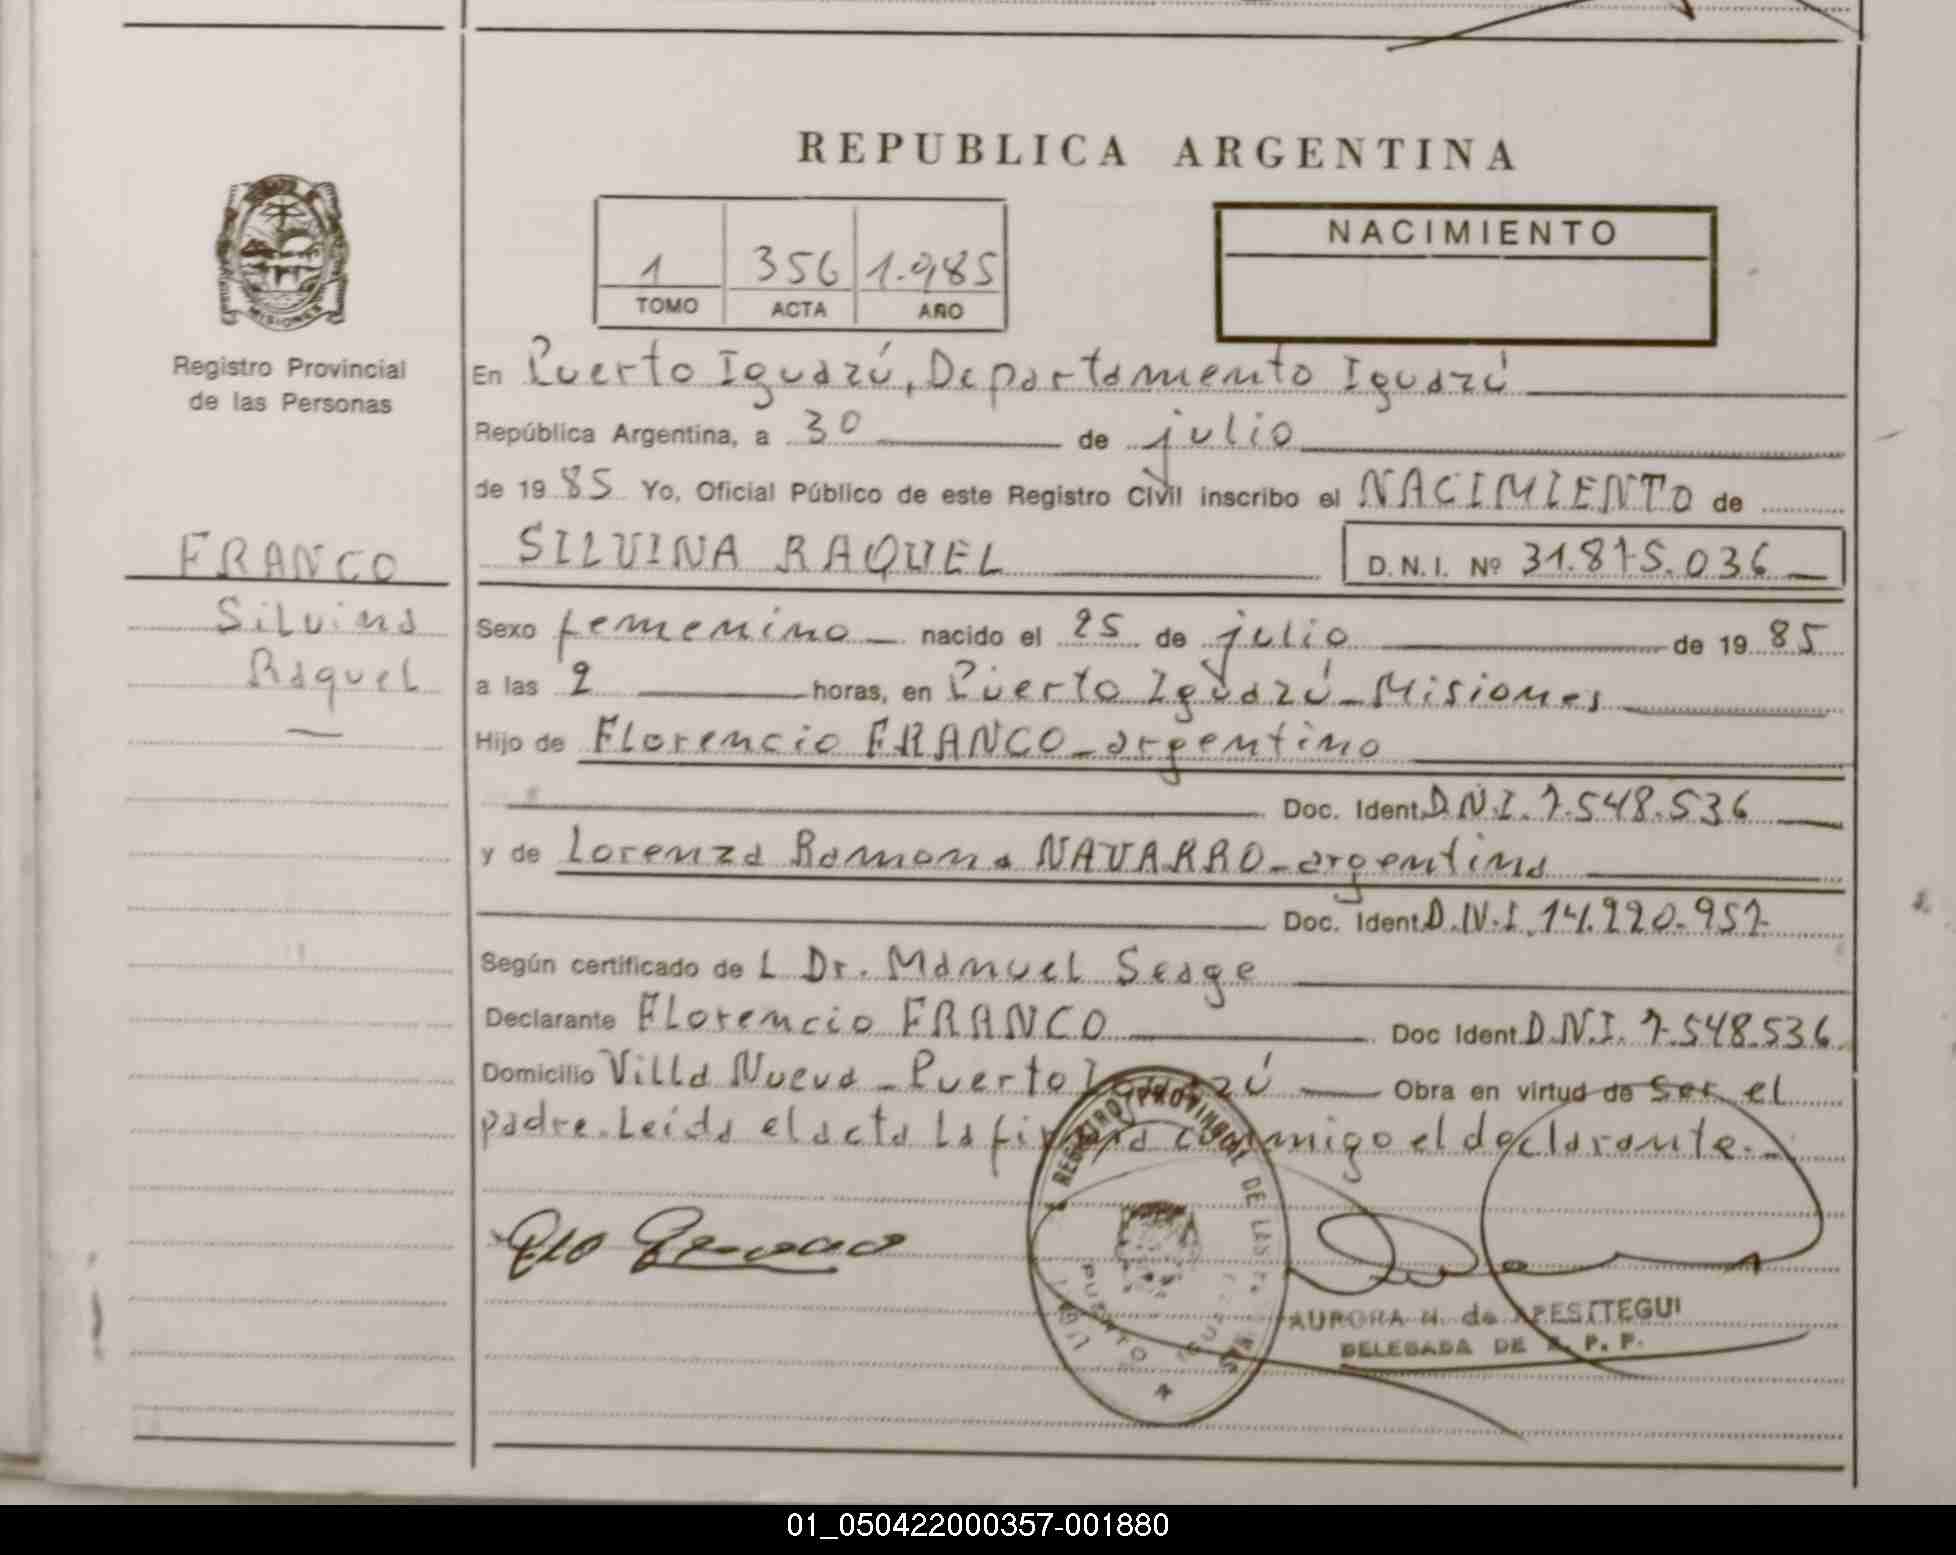 REPUBLICA ARGENTINA
NACIMIENTO
1 356 1.985
TOMO ACTA AÑO
MISIONES
Registro Provincial
de las Personas
En Puerto Iguazú, Departamento Iguazú
República Argentina, a 30 de julio
de 1985 Yo, Oficial Público de este Registro Civil inscribo el NACIMIENTO de
FRANCO
Silvina
Raquel
SILVINA RAQUEL D.N.I. Nº 31.875.036
Sexo femenino nacido el 25 de julio de 1985
a las 2 horas, en Puerto Iguazú - Misiones
Hijo de Florencio FRANCO - argentino
Doc. Ident. D.N.I. 7.548.536
y de Lorenza Ramona NAVARRO - argentina
Doc. Ident. D.N.I. 14.220.957
Según certificado de L Dr. Manuel Seage
Declarante Florencio FRANCO Doc Ident. D.N.I. 7.548.536
Domicilio Villa Nueva - Puerto Iguazú Obra en virtud de ser el
padre. Leída el acta la firma conmigo el declarante.-
REGISTRO PROVINCIAL DE LAS
PUERTO
AURORA N. de
DELEGADA DE R. P. P.
01_050422000357-001880